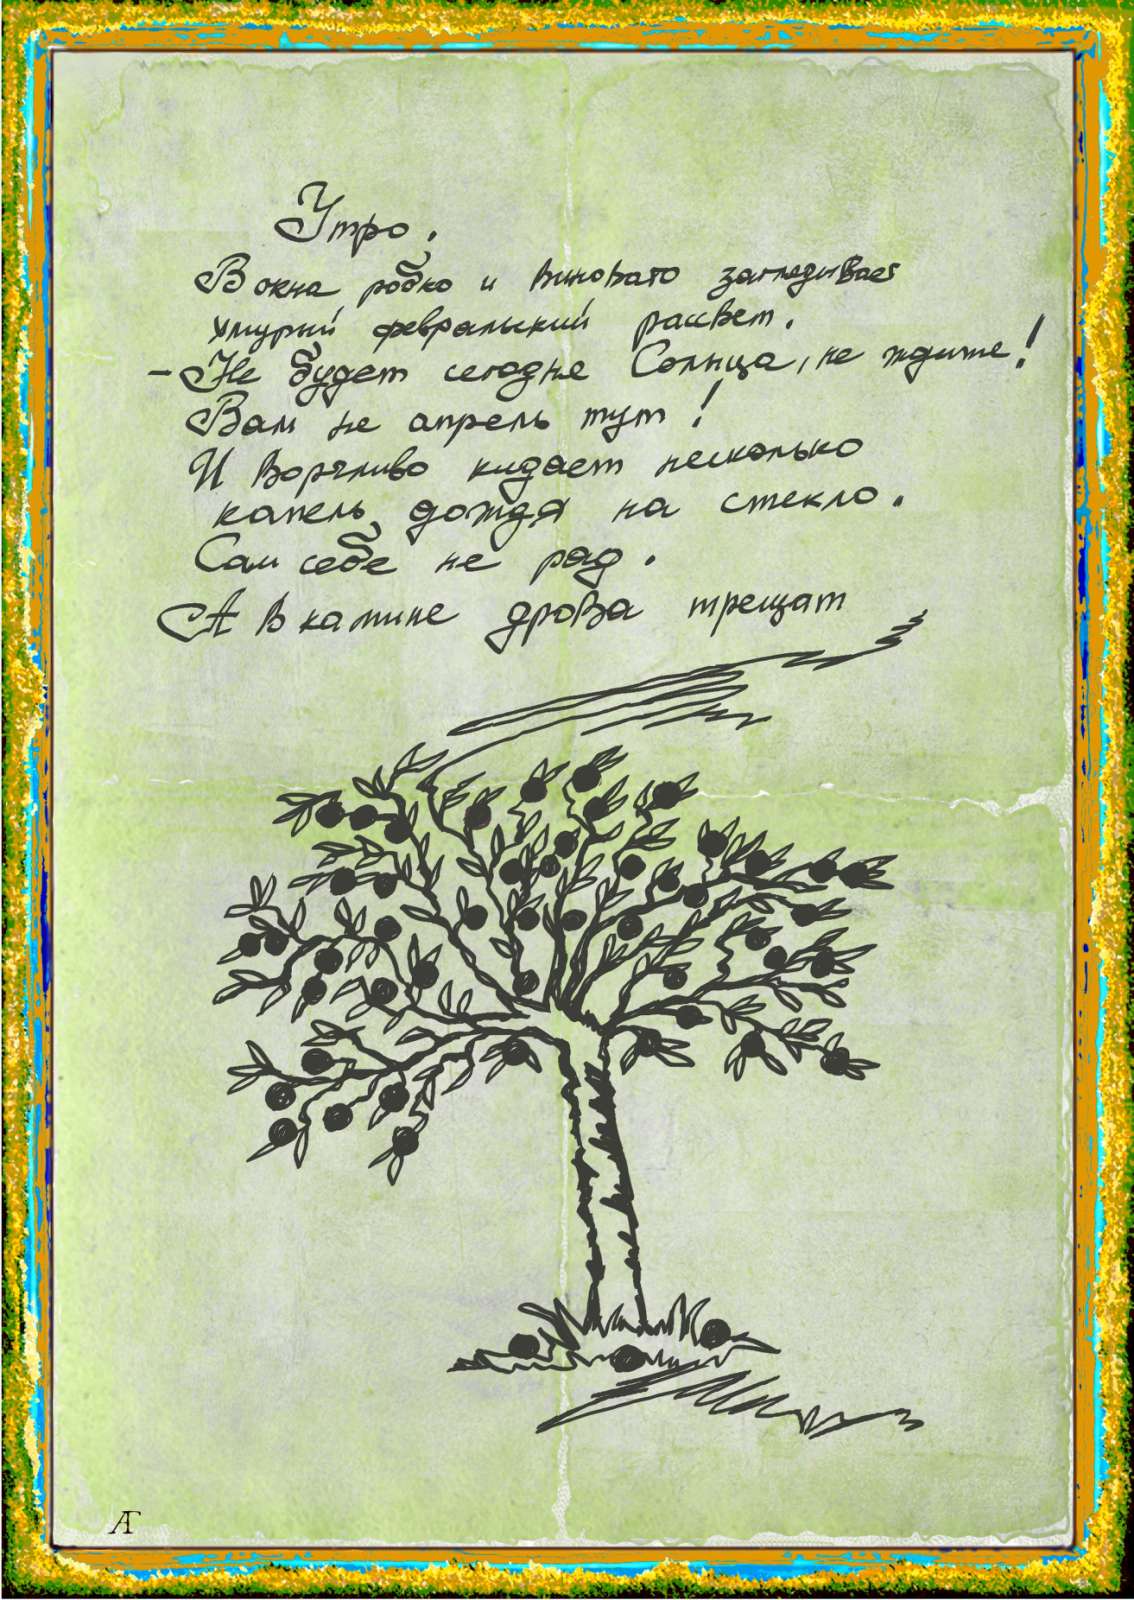 Утро.
В окна робко и виновато заглядывает
хмурый февральский рассвет.
- Не будет сегодня Солнца, не ждите!
Вам не апрель тут!
И ворчливо кидает несколько
капель дождя на стекло.
Сам себе не рад.
А в камине дрова трещат
АГ